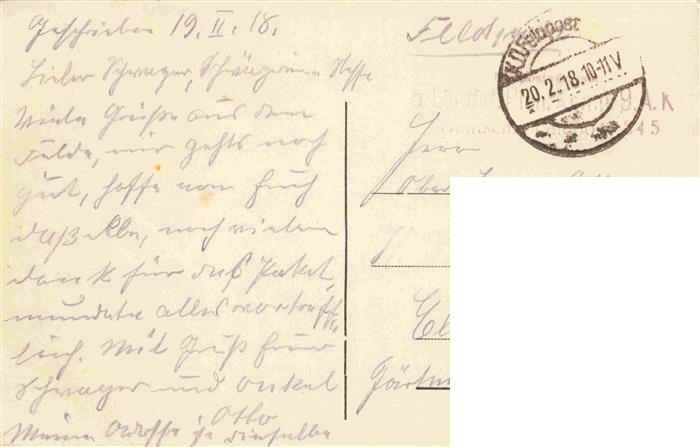 Geschrieben 19. II. 18.
Lieber Schwager, Schwägerin u Neffe
Viele Grüße aus dem
Felde, mir gehts noch
gut, hoffe von Euch
dasselbe, noch vielen
dank für das Paket,
mundete alles vortreff-
lich. Mit Gruß Euer
Schwager und onkel
Otto
Meine Adresse ist dieselbe
Feldpost
K.D. Feldpost
20.2.18.10-11V
9.A.K
45
Herrn
Ober
Gärtn